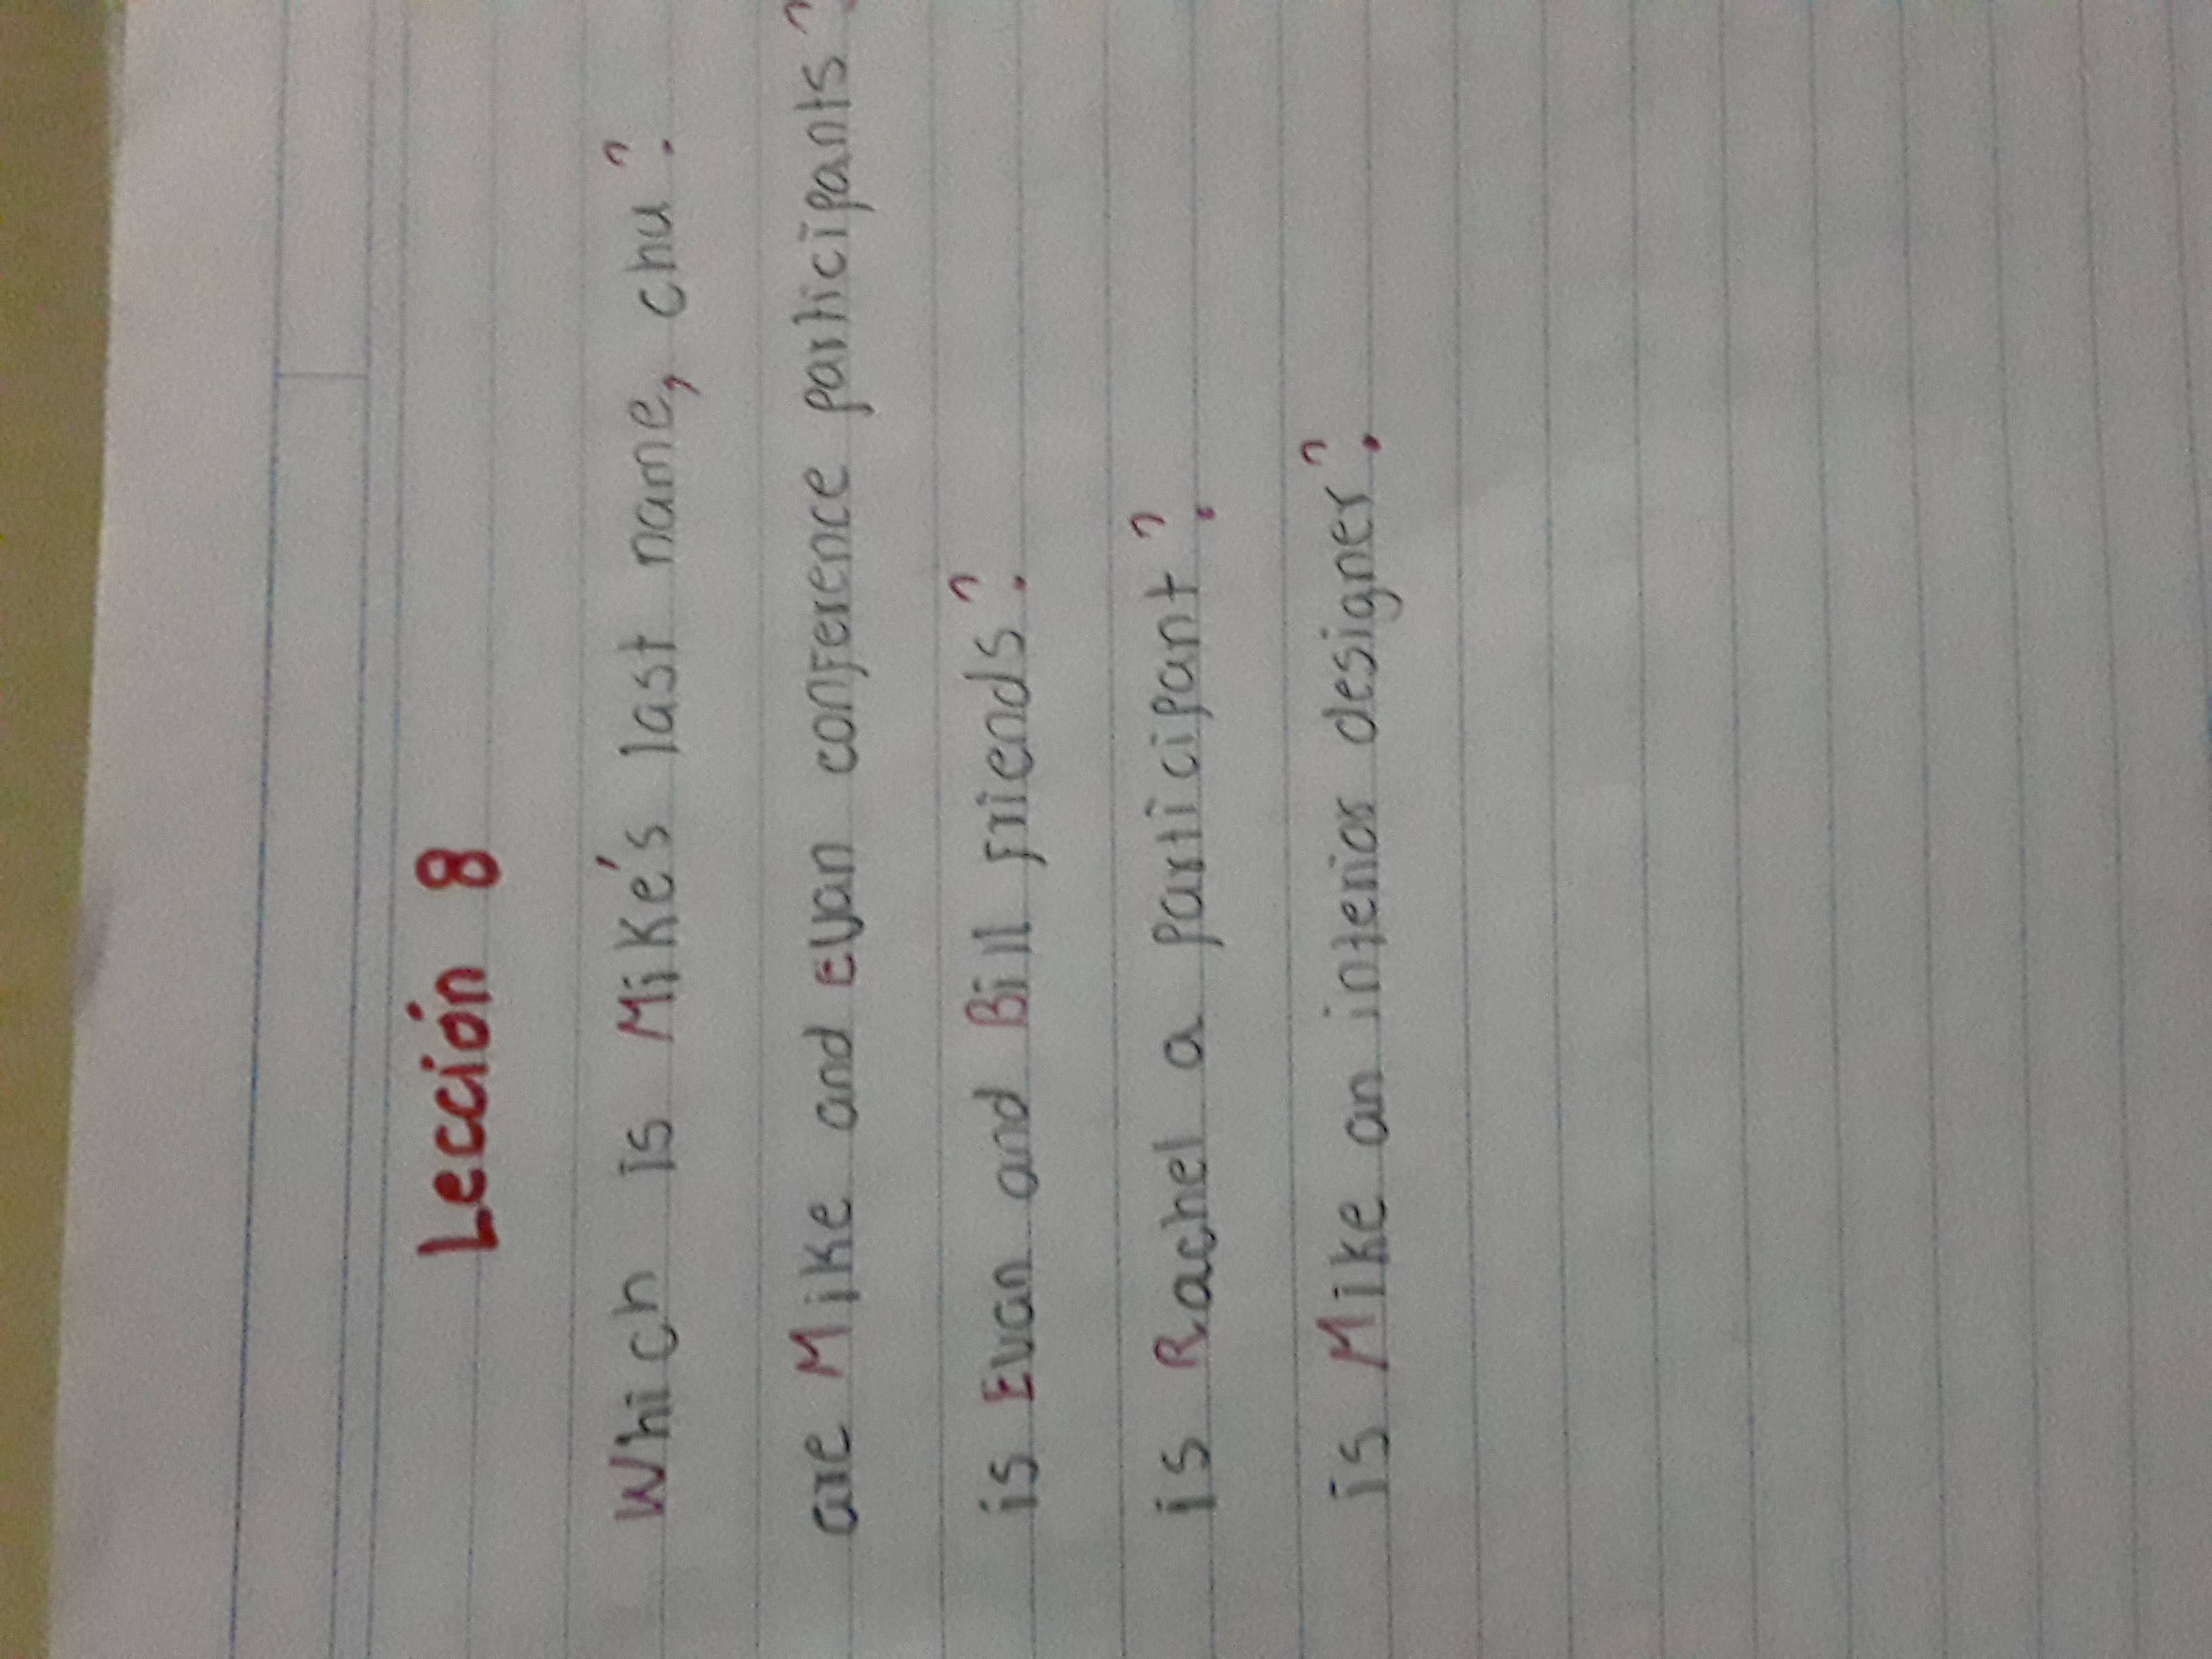 Lección 8
Which is Miké's last name, chu?
are Mike and Evan conference participants?
is Evan and Bill friends?
is Rachel a participant?
is Mike an interior designer?